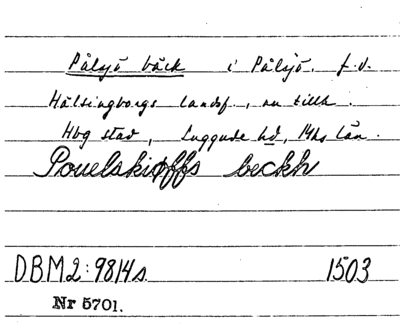 Pålsjö bäck i Pålsjö, f.d.
Hälsingborgs landsf., nu tillh.
Hbg stad, Luggude hd, Mhs län.
Pouelskiøffs beckh
DBM2:9814s. 1503
Nr 5701.